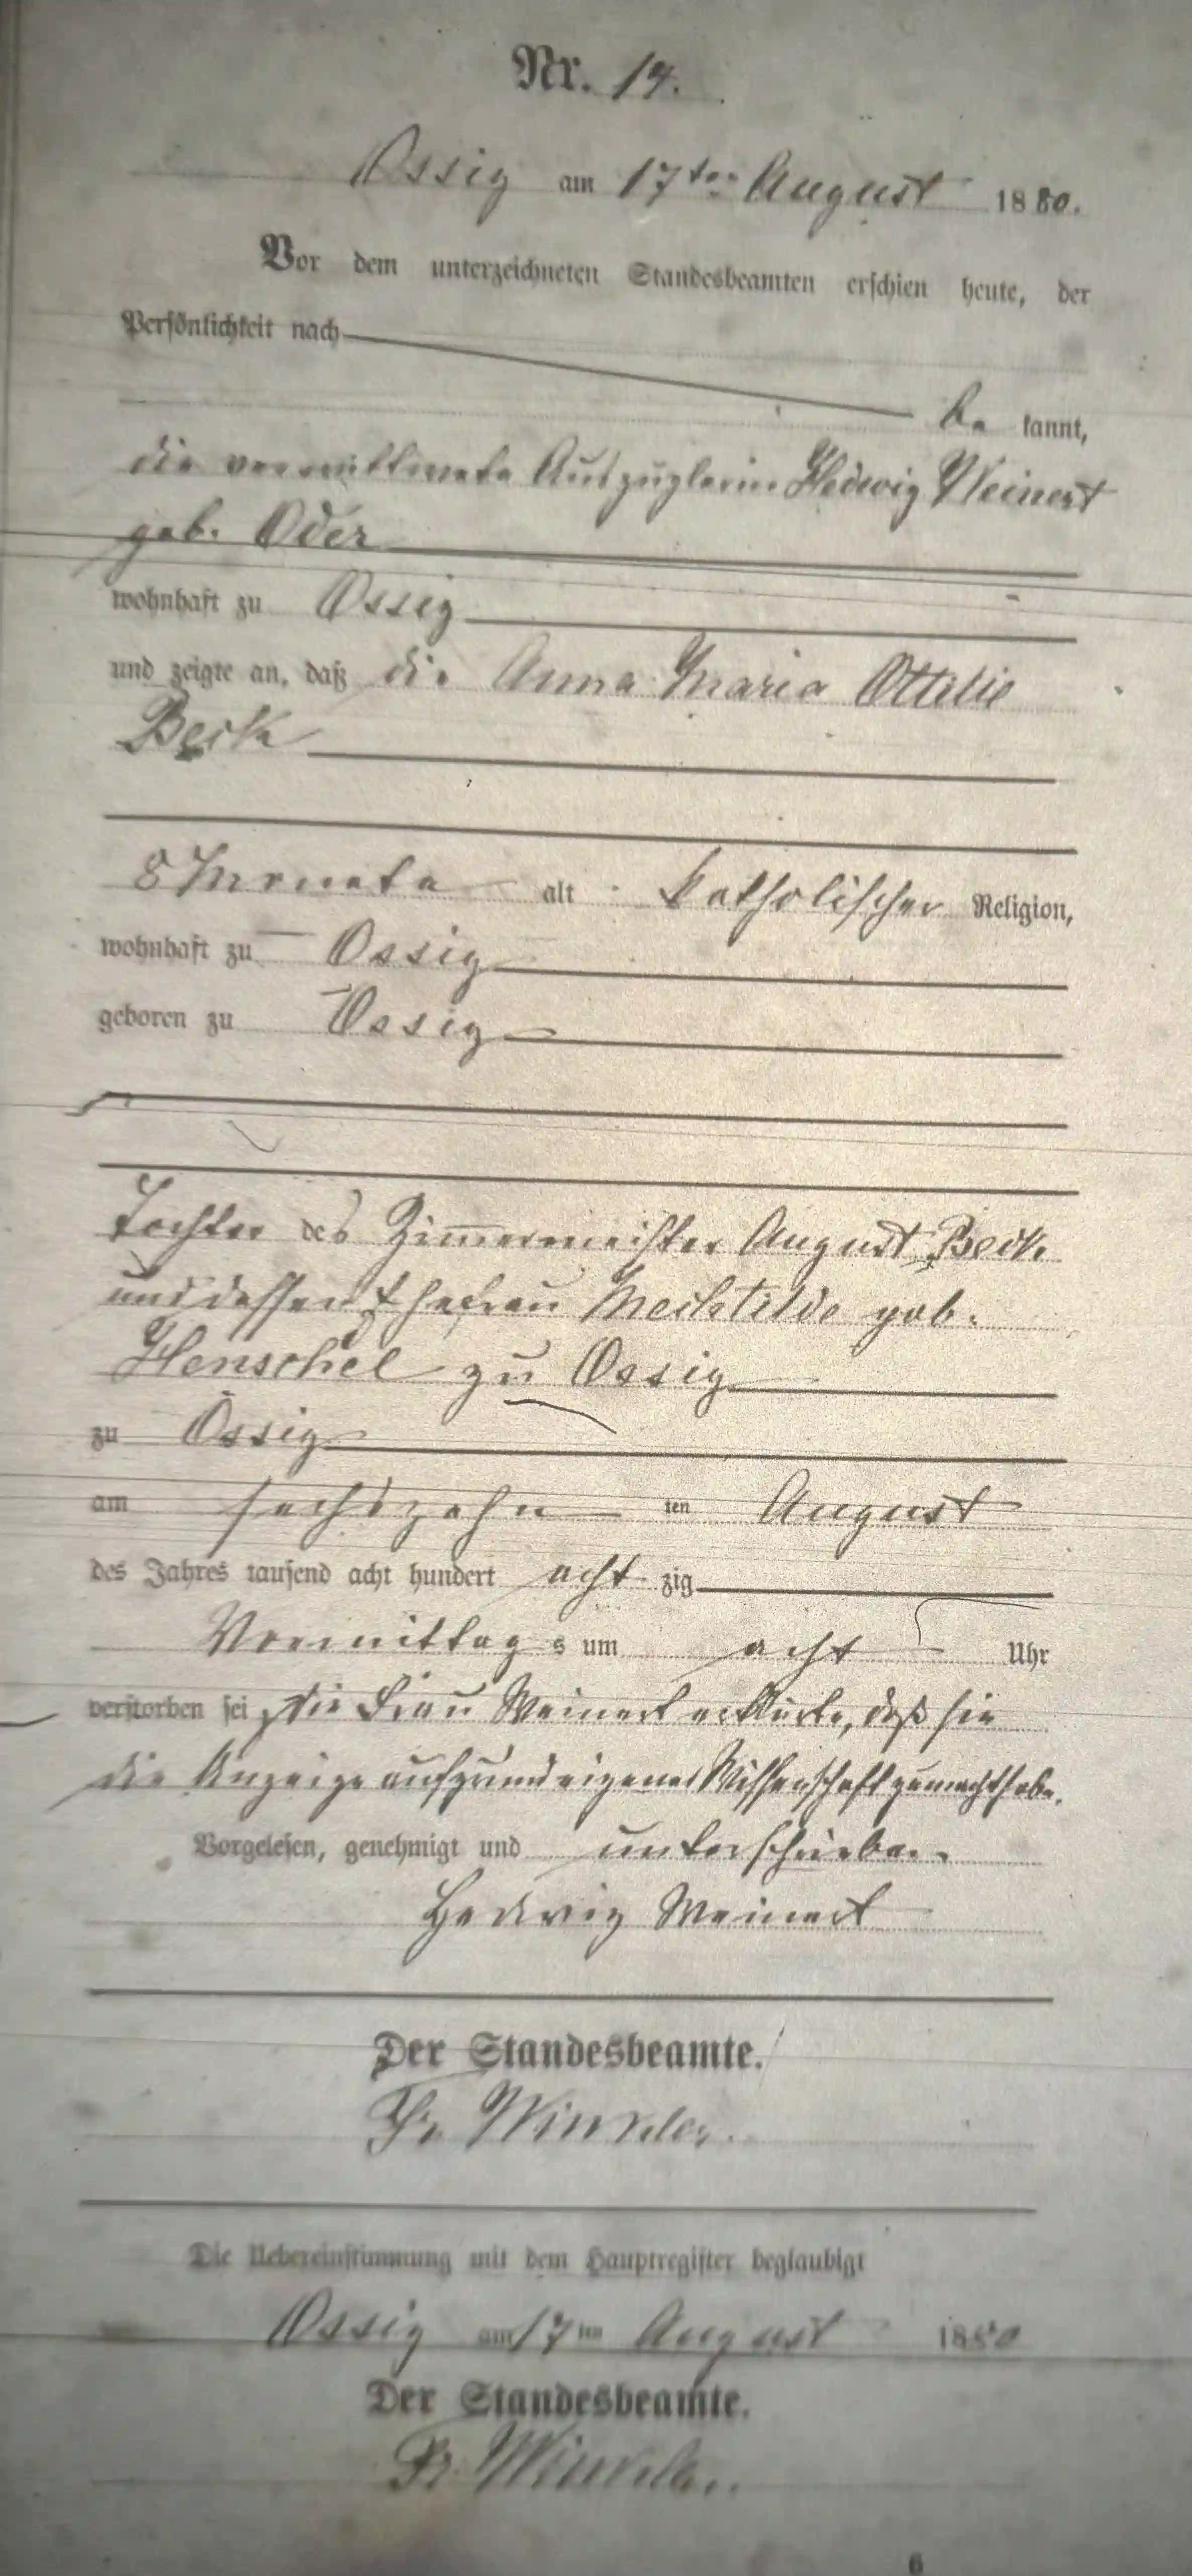 Nr. 14.
Ossig am 17ten August 1880.
Vor dem unterzeichneten Standesbeamten erschien heute, der
Persönlichkeit nach
be kannt,
die verwittwete Auszüglerin Hedwig Weinert
geb. Oder
wohnhaft zu Ossig
und zeigte an, daß die Anna Maria Ottilie
Beck
8 Monate alt katholischer Religion,
wohnhaft zu Ossig
geboren zu Ossig
Tochter des Zimmermeister August Beck
und dessen Ehefrau Mechtilde geb.
Henschel zu Ossig
zu Ossig
am sechszehn ten August
des Jahres tausend acht hundert acht zig
Vormittag s um acht Uhr
verstorben sei, die Frau Weinert erklärte, daß sie
die Anzeige aufgrund eigener Wissenschaft gemacht habe.
Vorgelesen, genehmigt und unterschrieben.
Hedwig Weinert
Der Standesbeamte.
Fr. Winkler.
Die Uebereinstimmung mit dem Hauptregister beglaubigt
Ossig am 17ten August 1880
Der Standesbeamte.
Fr. Winkler.
6